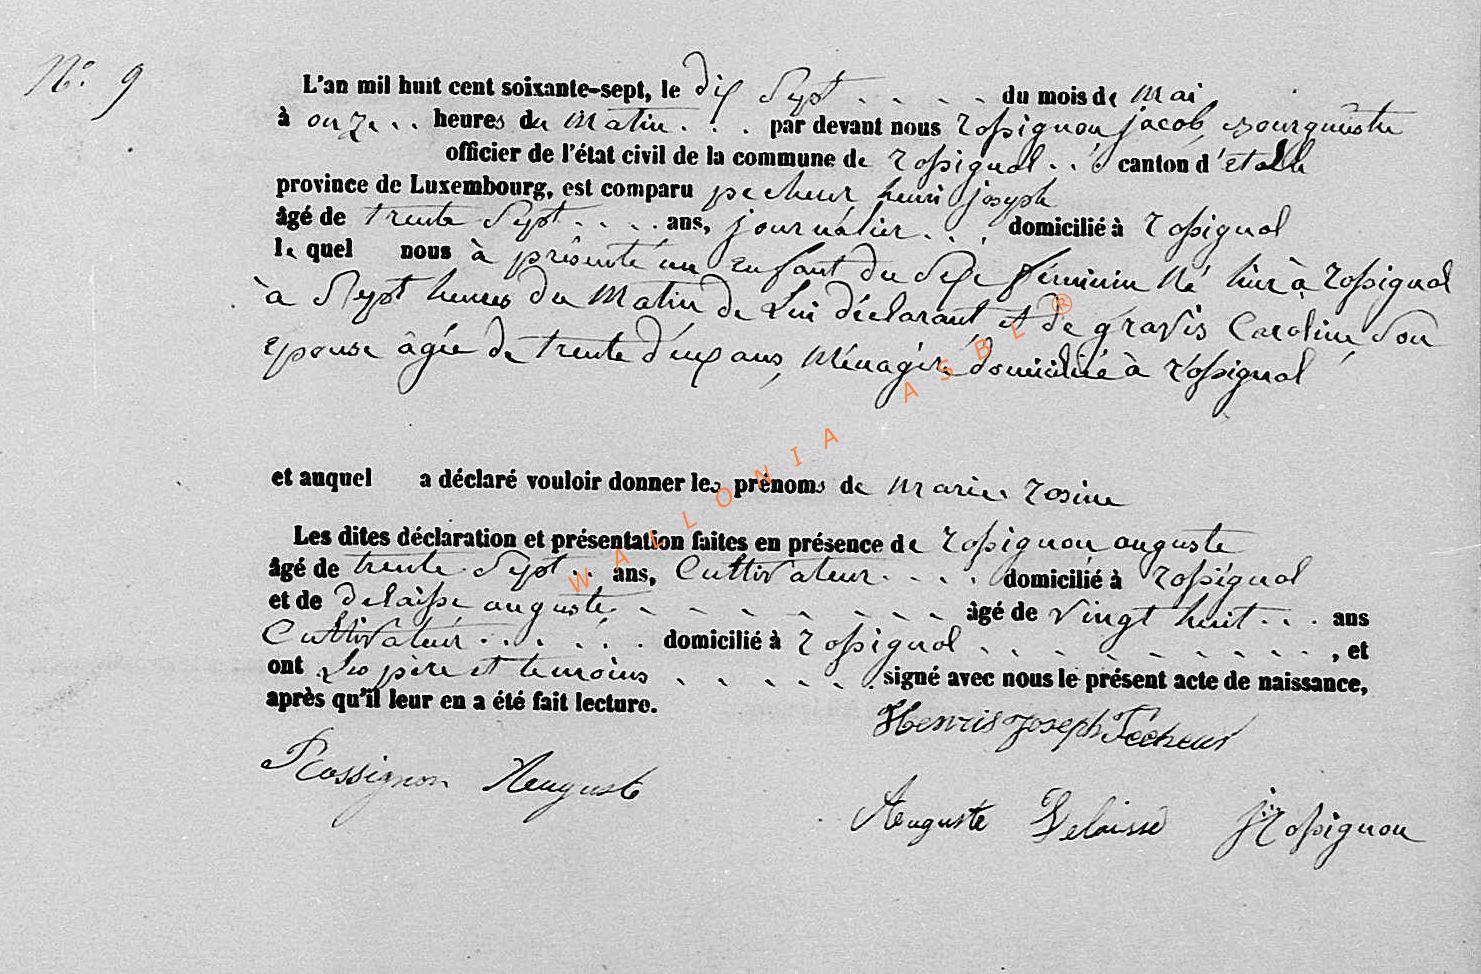 N° 9
L'an mil huit cent soixante-sept, le dix Sept . . . . du mois de mai
à onze . . heures du matin . . . par devant nous rossignon jacob, Bourguestre
officier de l'état civil de la commune de rossignol . . canton d'etalle
province de Luxembourg, est comparu pecheur henri joseph
âgé de trente Sept . . . . ans, journalier . . . domicilié à rossignol
lequel nous à présenté un enfant du Sexe feminin Né hier à rossignol
à Sept heures du Matin de Lui déclarant et de gravis Caroline Son
epouse âgée de trente deux ans, Ménagère domiciliée à rossignol
et auquel a déclaré vouloir donner les prénoms de marie rosine
Les dites déclaration et présentation faites en présence de rossignon auguste
âgé de trente Sept . . ans, Cultivateur . . . . domicilié à rossignol
et de delaisse auguste . - - - - - - - - âgé de vingt huit . . . ans
Cultivateur . . . . . . domicilié à rossignol . . . - - - - - - . . , et
ont Les père et temoins - - - - - . signé avec nous le présent acte de naissance,
après qu'il leur en a été fait lecture.
Henris Joseph Pecheur
Rossignon Auguste
Auguste Delaisse J Rossignon
WALLONIA ASBL ®